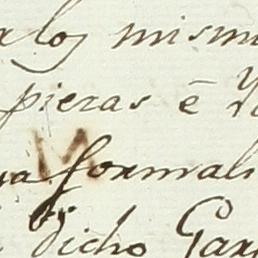 a los mism
piezas é Y
na formali
dicho Gar